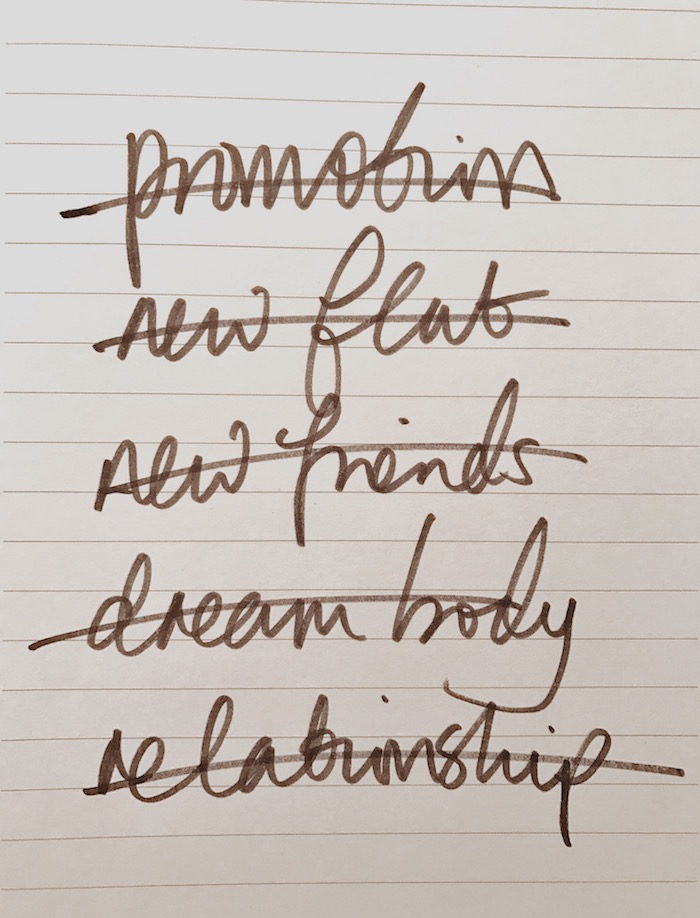 promotion
new flat
new friends
dream body
relationship